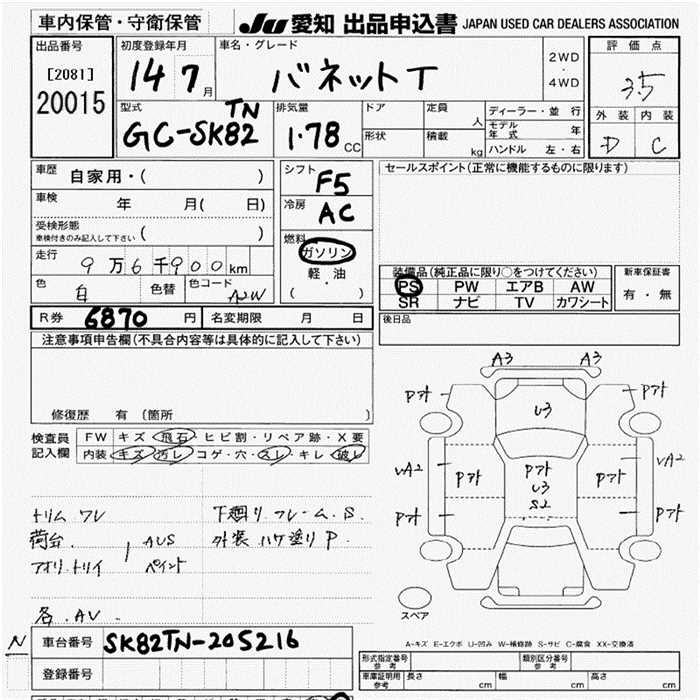 車内保管・守衛保管 JU 愛知 出品申込書 JAPAN USED CAR DEALERS ASSOCIATION
出品番号
[2081]
20015
初度登録年月
14 7 月
車名・グレード
バネットT
2WD
・
4WD
評価点
3.5
外装 内装
D C
型式
GC-SK82TN
排気量
1.78 CC
ドア
形状
定員 人
積載 kg
ディーラー・並行
モデル年式 年
ハンドル 左・右
車歴 自家用・( )
車検 年 月( 日)
受検形態
車検付きのみ記入して下さい ( )
走行 9万6千900 km
色 白 色替 色コード
シフト F5
冷房 AC
燃料
ガソリン
軽・油
( )
セールスポイント(正常に機能するものに限ります)
装備品(純正品に限り○をつけてください)
PS PW エアB AW
SR ナビ TV カワシート
新車保証書
有・無
後日品
R券 6870 円 名変期限 月 日
注意事項申告欄(不具合内容等は具体的に記入して下さい)
修復歴 有 (箇所
検査員記入欄
FW キズ・飛石・ヒビ割・リペア跡・X要
内装 キズ・汚レ・コゲ・穴・スレ・キレ・破レ
トリム ワレ
荷台
アオリ・トリイ
AUS
ペイント
各 AV.
下廻リ フレーム S.
外装 ハケ塗リ P
A3 A3
Pアト Pアト
U3
VA2 VA2
Pアト Pアト Pアト
U3
S2
Pアト Pアト
スペア
A-キズ E-エクボ U-凹み W-補修跡 S-サビ C-腐食 XX-交換済
N 車台番号 SK82TN-205216
登録番号
形式指定番号 参考
類別区分番号 参考
車庫証明用 参考 長さ cm 幅 cm 高さ cm